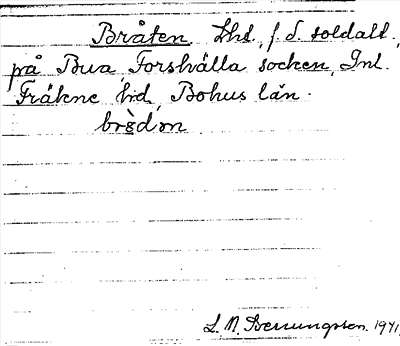 Bråten. Lht, f.d. soldatt.,
på Bua, Forshälla socken, Inl.
Fräkne hd, Bohus län.
brɷ̀dn
L. N. Svenungsson. 1941.